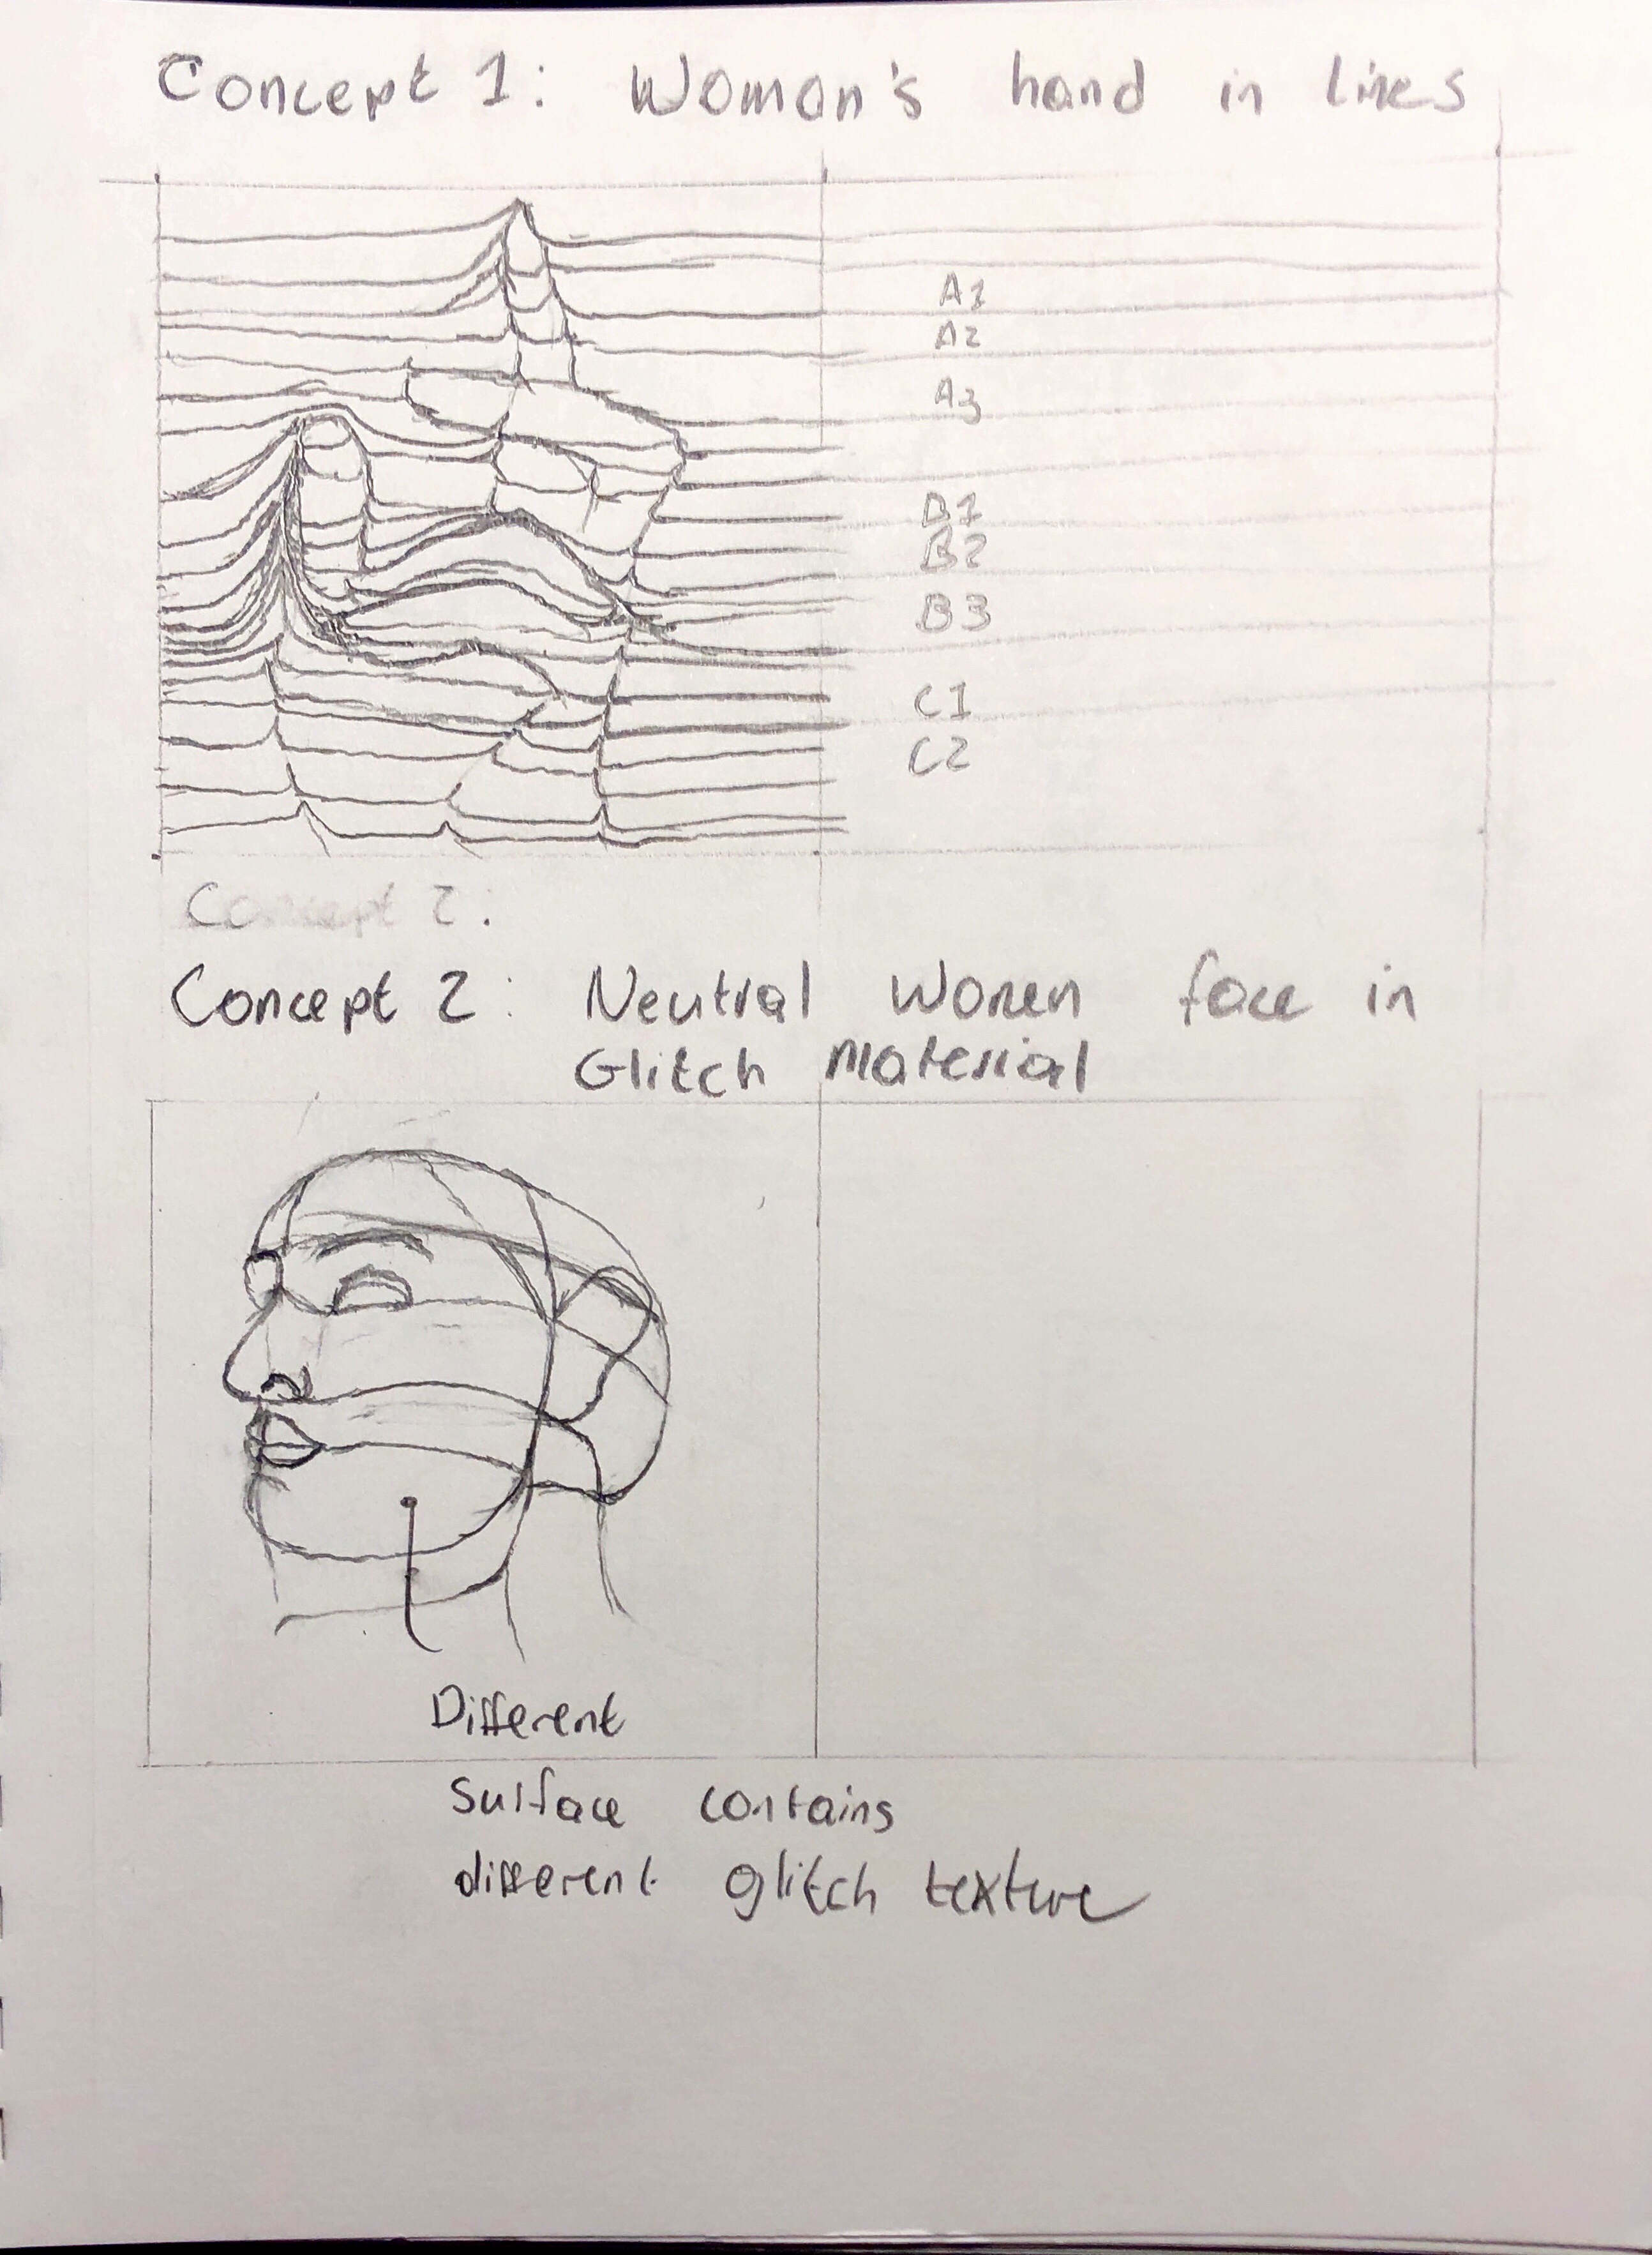 Concept 1: Woman's hand in lines
A1
A2
A3
B1
B2
B3
C1
C2
Concept 2:
Concept 2: Neutral Women face in
Glitch Material
Different
surface contains
different glitch texture